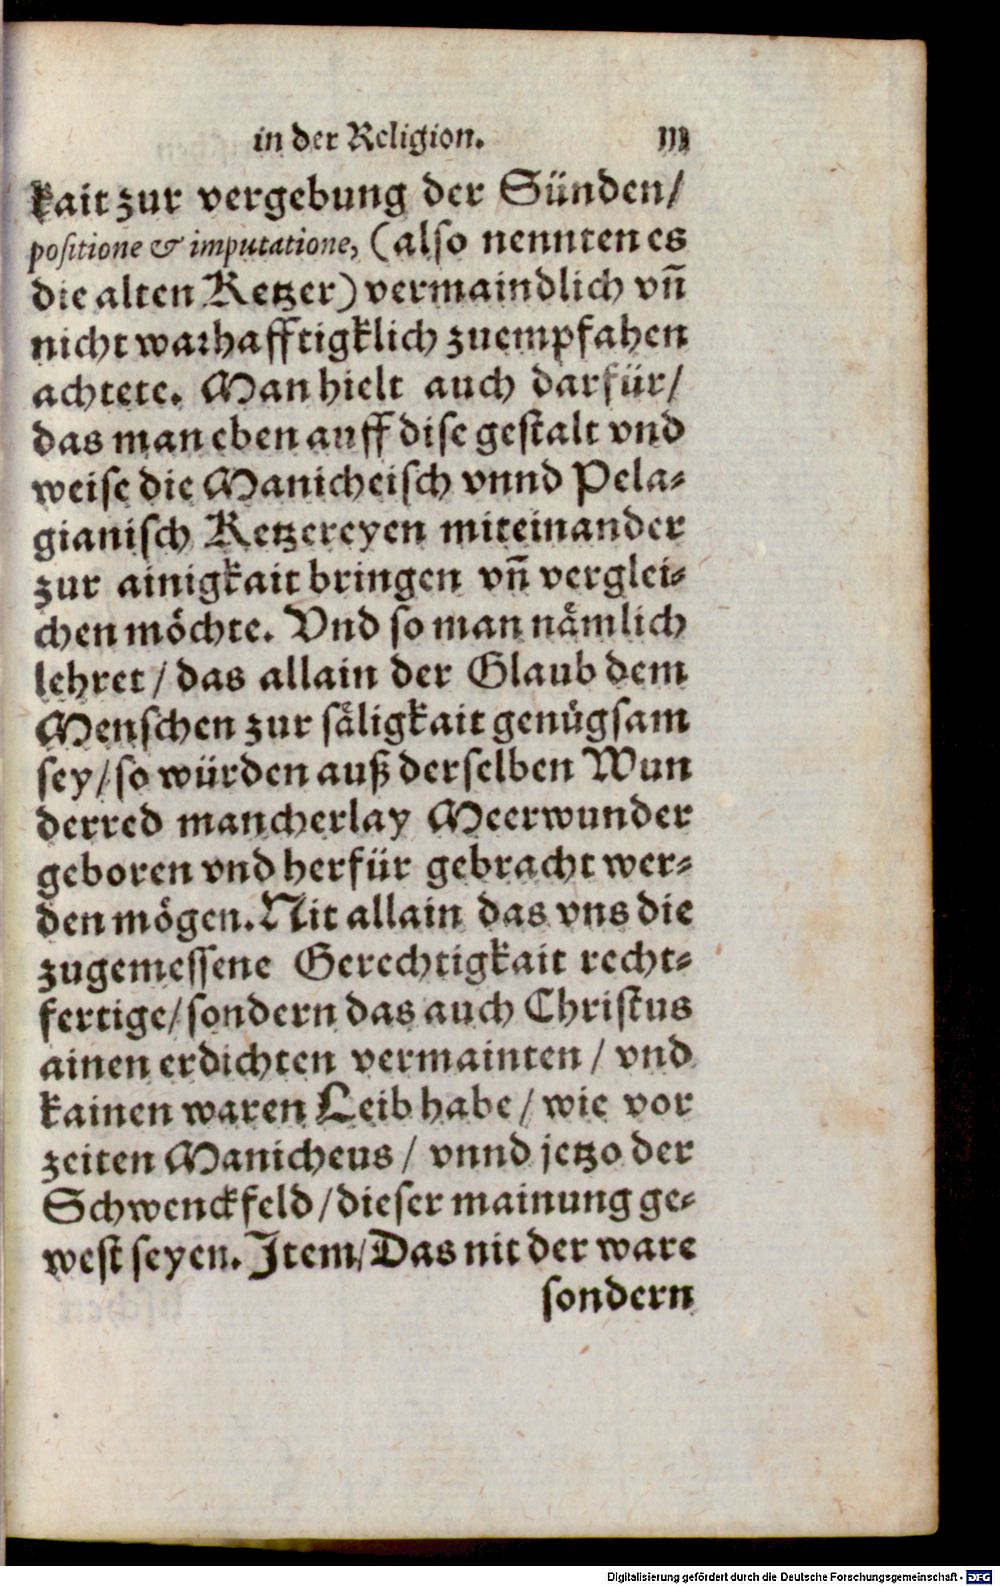 in der Religion. 111
kait zur vergebung der Sünden/
positione & imputatione, (also nennten es
die alten Ketzer) vermaindlich vñ
nicht warhafftigklich zuempfahen
achtete. Man hielt auch darfür/
das man eben auff dise gestalt vnd
weise die Manicheisch vnnd Pela⸗
gianisch Ketzereyen miteinander
zur ainigkait bringen vñ verglei⸗
chen möchte. Vnd so man nämlich
lehret/ das allain der Glaub dem
Menschen zur säligkait genügsam
sey/ so würden auß derselben Wun
derred mancherlay Meerwunder
geboren vnd herfür gebracht wer⸗
den mögen. Nit allain das vns die
zugemessene Gerechtigkait recht⸗
fertige/ sondern das auch Christus
ainen erdichten vermainten/ vnd
kainen waren Leib habe/ wie vor
zeiten Manicheus/ vnnd jetzo der
Schwenckfeld/ dieser mainung ge⸗
west seyen. Item/ Das nit der ware
sondern
Digitalisierung gefördert durch die Deutsche Forschungsgemeinschaft - DFG